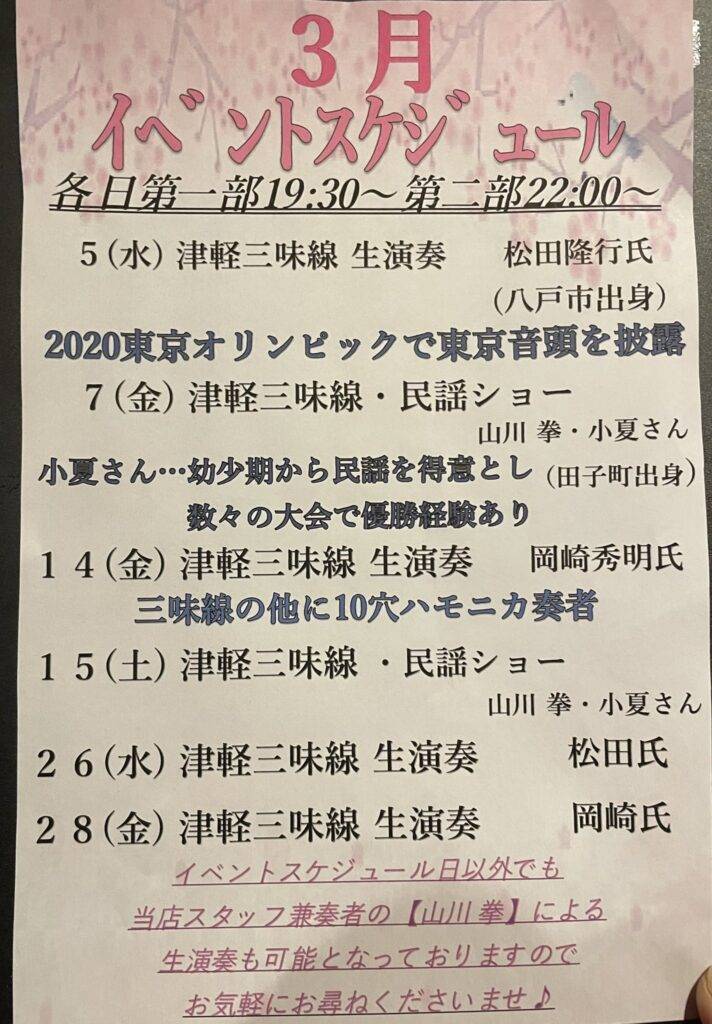 3月
イベントスケジュール
各日第一部19:30～第二部22:00～
5(水) 津軽三味線 生演奏 松田隆行氏
(八戸市出身)
2020東京オリンピックで東京音頭を披露
7(金) 津軽三味線・民謡ショー
山川 拳・小夏さん
小夏さん…幼少期から民謡を得意とし (田子町出身)
数々の大会で優勝経験あり
14(金) 津軽三味線 生演奏 岡崎秀明氏
三味線の他に10穴ハモニカ奏者
15(土) 津軽三味線 ・民謡ショー
山川 拳・小夏さん
26(水) 津軽三味線 生演奏 松田氏
28(金) 津軽三味線 生演奏 岡崎氏
イベントスケジュール日以外でも
当店スタッフ兼奏者の【山川 拳】による
生演奏も可能となっておりますので
お気軽にお尋ねくださいませ♪